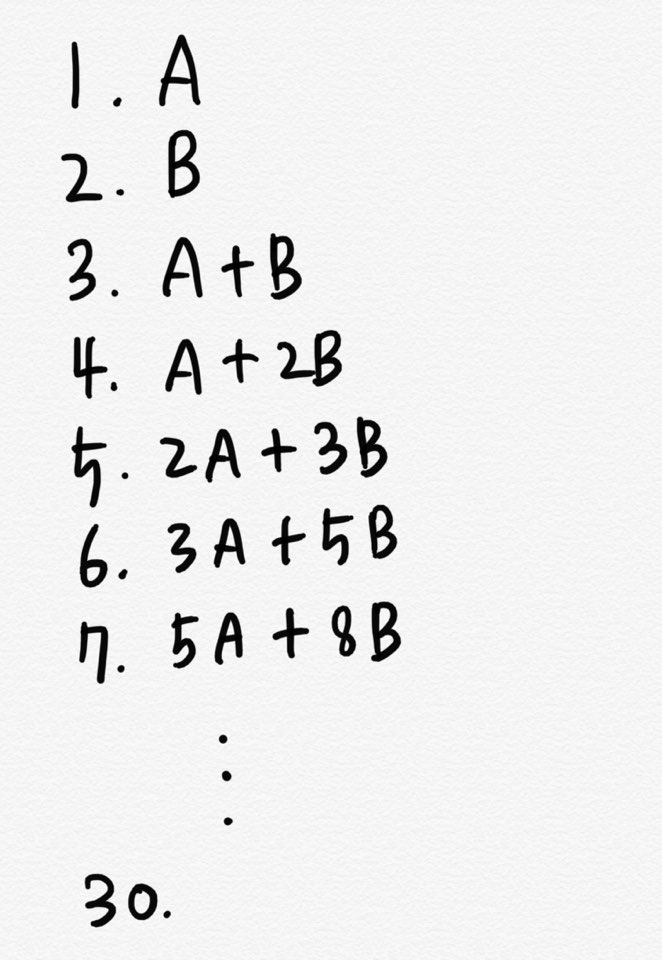 1. A
2. B
3. A+B
4. A+2B
5. 2A+3B
6. 3A+5B
7. 5A+8B
⋮
30.